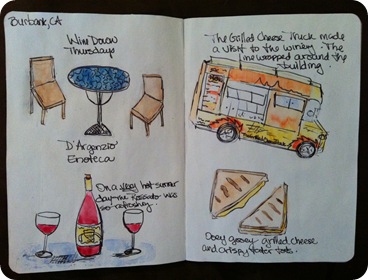 Burbank, CA
Wind Down
Thursdays
D'Argenzio
Enoteca
On a very hot summer
day the Moscato was
so refreshing.
The Grilled Cheese Truck made
a visit to the winery. The
line wrapped around the
building.
Ooey gooey grilled cheese
and crispy tater tots.